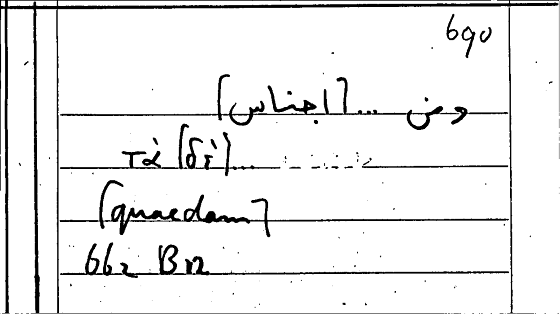 690
ومن ... [اجناس]
τὰ [δὲ] ...
[quaedam]
662 B12